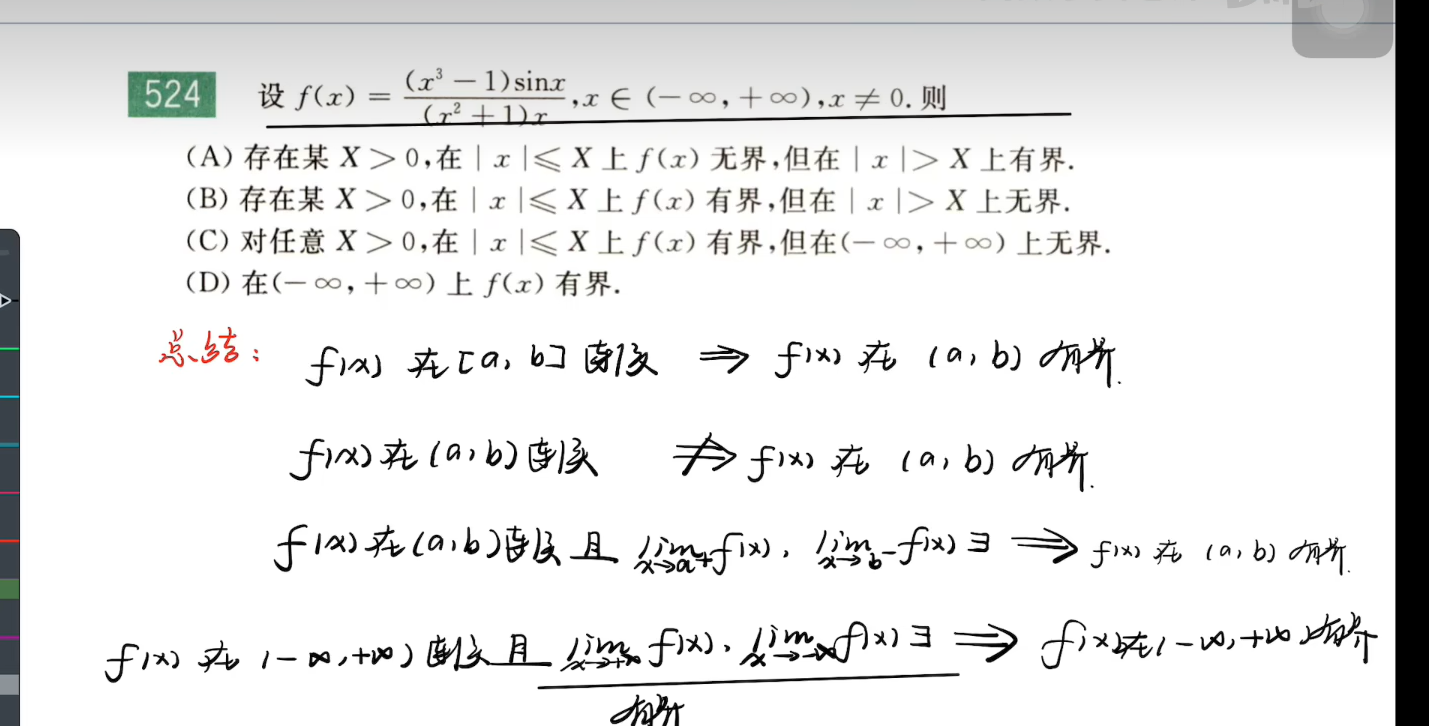 524 设 f(x) = \frac{(x³ − 1)sinx}{(x² + 1)x}, x ∈ (−∞, +∞), x ≠ 0. 则
(A) 存在某 X > 0,在 | x |⩽ X 上 f(x) 无界,但在 | x |> X 上有界.
(B) 存在某 X > 0,在 | x |⩽ X 上 f(x) 有界,但在 | x |> X 上无界.
(C) 对任意 X > 0,在 | x |⩽ X 上 f(x) 有界,但在(−∞, +∞) 上无界.
(D) 在(−∞, +∞) 上 f(x) 有界.
总结: f(x) 在 [a, b] 连续 ⇒ f(x) 在 (a, b) 有界.
f(x) 在 (a, b) 连续 ⇏ f(x) 在 (a, b) 有界.
f(x) 在 (a, b) 连续 且 lim_{x→a+} f(x), lim_{x→b−} f(x) ∃ ⇒ f(x) 在 (a, b) 有界.
f(x) 在 (−∞, +∞) 连续 且 lim_{x→+∞} f(x), lim_{x→−∞} f(x) ∃ ⇒ f(x) 在 (−∞, +∞) 有界
有界